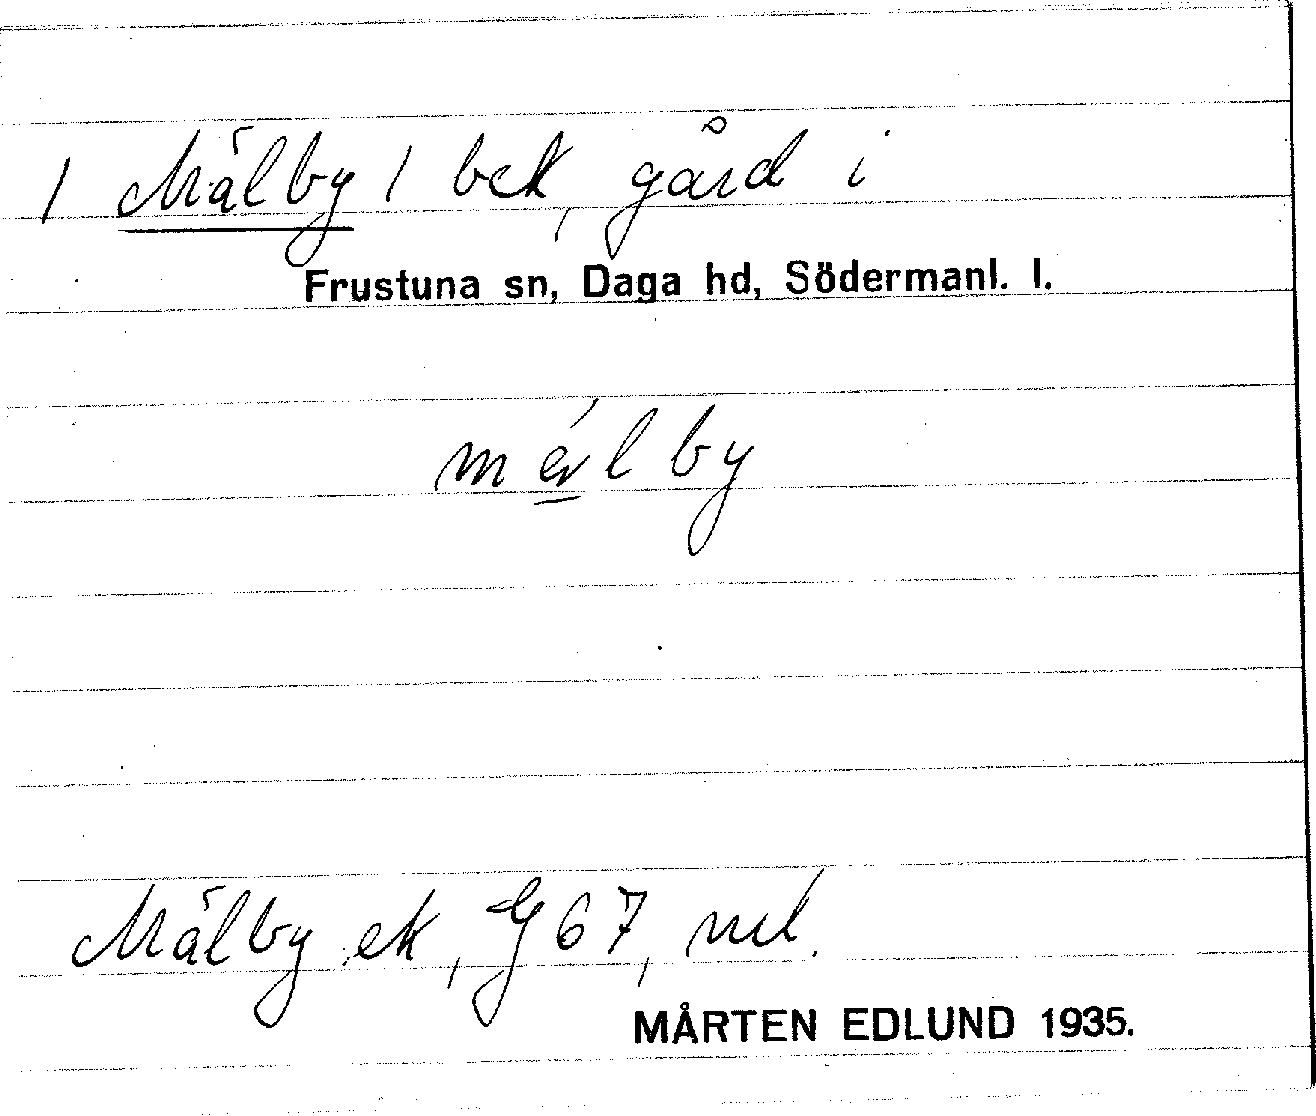 / Mälby / bek, gård i
Frustuna sn, Daga hd, Södermanl. l.
mǽlby
Mälby ek, G 67, nul.
MÅRTEN EDLUND 1935.